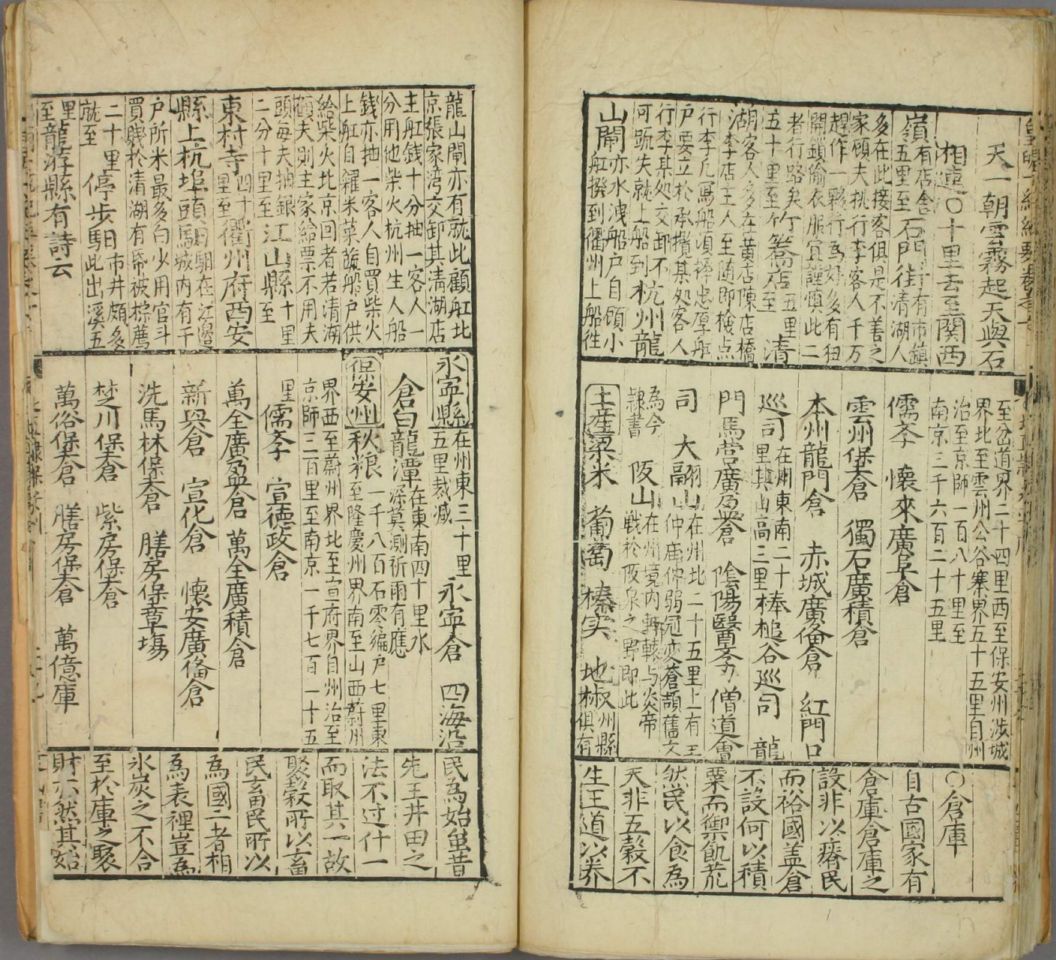 天一朝雲霧起天與石
相連〇十里舌至關西
嶺有店舍
五里至石門街
街有市鎮
清湖人
多在此接客俱是不善之
家顧夫扛行李客人千万
趕作一夥行為好多有
開頭偷衣服宜謹慎此二
者行路矣
五里
五十里至竹簥店至清
湖客人多在黄店陳店橋
李店主人至随即檢点
行李凡寫船須擇忠厚船
户要立於承攬某处客人
行李某处交卸不
可踈失就上船到杭州龍
山閘亦水洩船户自顧小
船撥到衢州上船徃
至岔道界二十四里西至保安州涉城
界北至雲州公谷寨界五十五里自州
治至京師一百八十里至
南京三千六百二十五里
儒孝 懷來廣阜倉
雲州堡倉 獨石廣積倉
本州龍門倉 赤城廣偹倉 紅門口
巡司在州東南二十
里與山高三里棒槌谷巡司 龍
門馬营廣盈倉 陰陽醫孝 僧道會
司 大翮山在州北二十五里上有王
仲庙仲弱冠変蒼頡舊文
為今
隸書 阪山在州境内軒轅与炎帝
戰於阪泉之野即此
土産粱米 葡萄 榛实 地椒州縣
俱有
〇倉庫
自古國家有
倉庫倉庫之
設非以瘠民
而裕國盖倉
不設何以積
粟而禦飢荒
然民以食為
天非五穀不
生王道以养
龍山閘亦有就此顧舡北
京張家湾交卸其清湖店
主舡钱十分抽一客人一
分用他柴火杭州生人船
錢亦抽一客人自買柴火
上舡自糴米菜䤈船户供
給柴火北京回者若清湖
顧夫則主家給票不用夫
頭每夫抽銀
二分十里至江山縣十里
至
東村寺四十
里至衢州府西安
縣上杭埠頭
馹在江邉
城内有千
户所米最多白少用官斗
買賤於清湖有
二十里
就至停步馹此出溪五
日市井頗多
里
至龍游縣有詩云
永寧縣在州東三十里
五里裁减 永寧倉 四海治
倉白龍潭在東南四十里水
深莫測祈雨有應
保安州秋粮一千八百石零编户七里東
至隆慶州界南至山西蔚州
界西至蔚州界北至宣府界自州治至
京師三百里至南京一千七百一十五
里儒孝 宣德政倉
萬全廣盈倉 萬全廣積倉
新興倉 宣化倉 懷安廣偹倉
洗馬林堡倉 膳房堡章塲
埜川堡倉 紫房堡倉
萬俗堡倉 膳房堡倉 萬億庫
民為始虽昔
先王井田之
法不过什一
而取其一故
聚穀所以畜
民畜民所以
為國二者相
為表裡豈為
氷炭之不合
至於庫之聚
財亦然其始